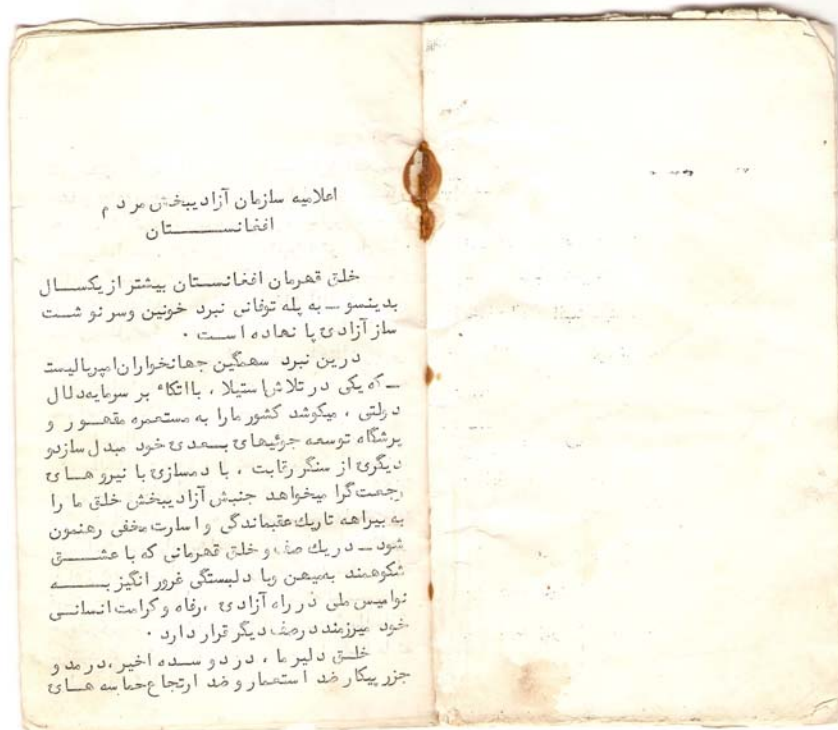 اعلامیه سازمان آزادیبخش مردم
افغانســـــــتان
خلق قهرمان افغانستان بیشتر از یکسال
بدینسو ــ به پله توفانی نبرد خونین وسرنوشت
ساز آزادی پا نهاده است ·
درین نبرد سهمگین جهانخواران امپریالیست
ــ که یکی در تلاش استیلا ، بااتکاء بر سرمایه دلال
دولتی ، میکوشد کشور مارا به مستعمره مقهــور و
پرشگاه توسعه جوئیهای بــعدی خود مبدل سازدو
دیگری از سنگر رقابت ، با دمسازی با نیروهــای
رجعت‌گرا میخواهد جنبش آزادیبخش خلق ما را
به بیراهه تاریك عقبماندگی و اسارت مخفی رهنمون
شود ــ دریك صف و خلق قهرمانی که با عشــــق
شکوهمند بمیهن وبا دلبستگی غرور انگیز بــــه
نوامیس ملی در راه آزادی ،رفاه وکرامت انسانــی
خود میرزمند درصف دیگر قرار دارد ·
خلــق دلیر ما ، در دو ســده اخیر ،در مد و
جزر پیکار ضد استعمار و ضد ارتجاع حماسه هــای